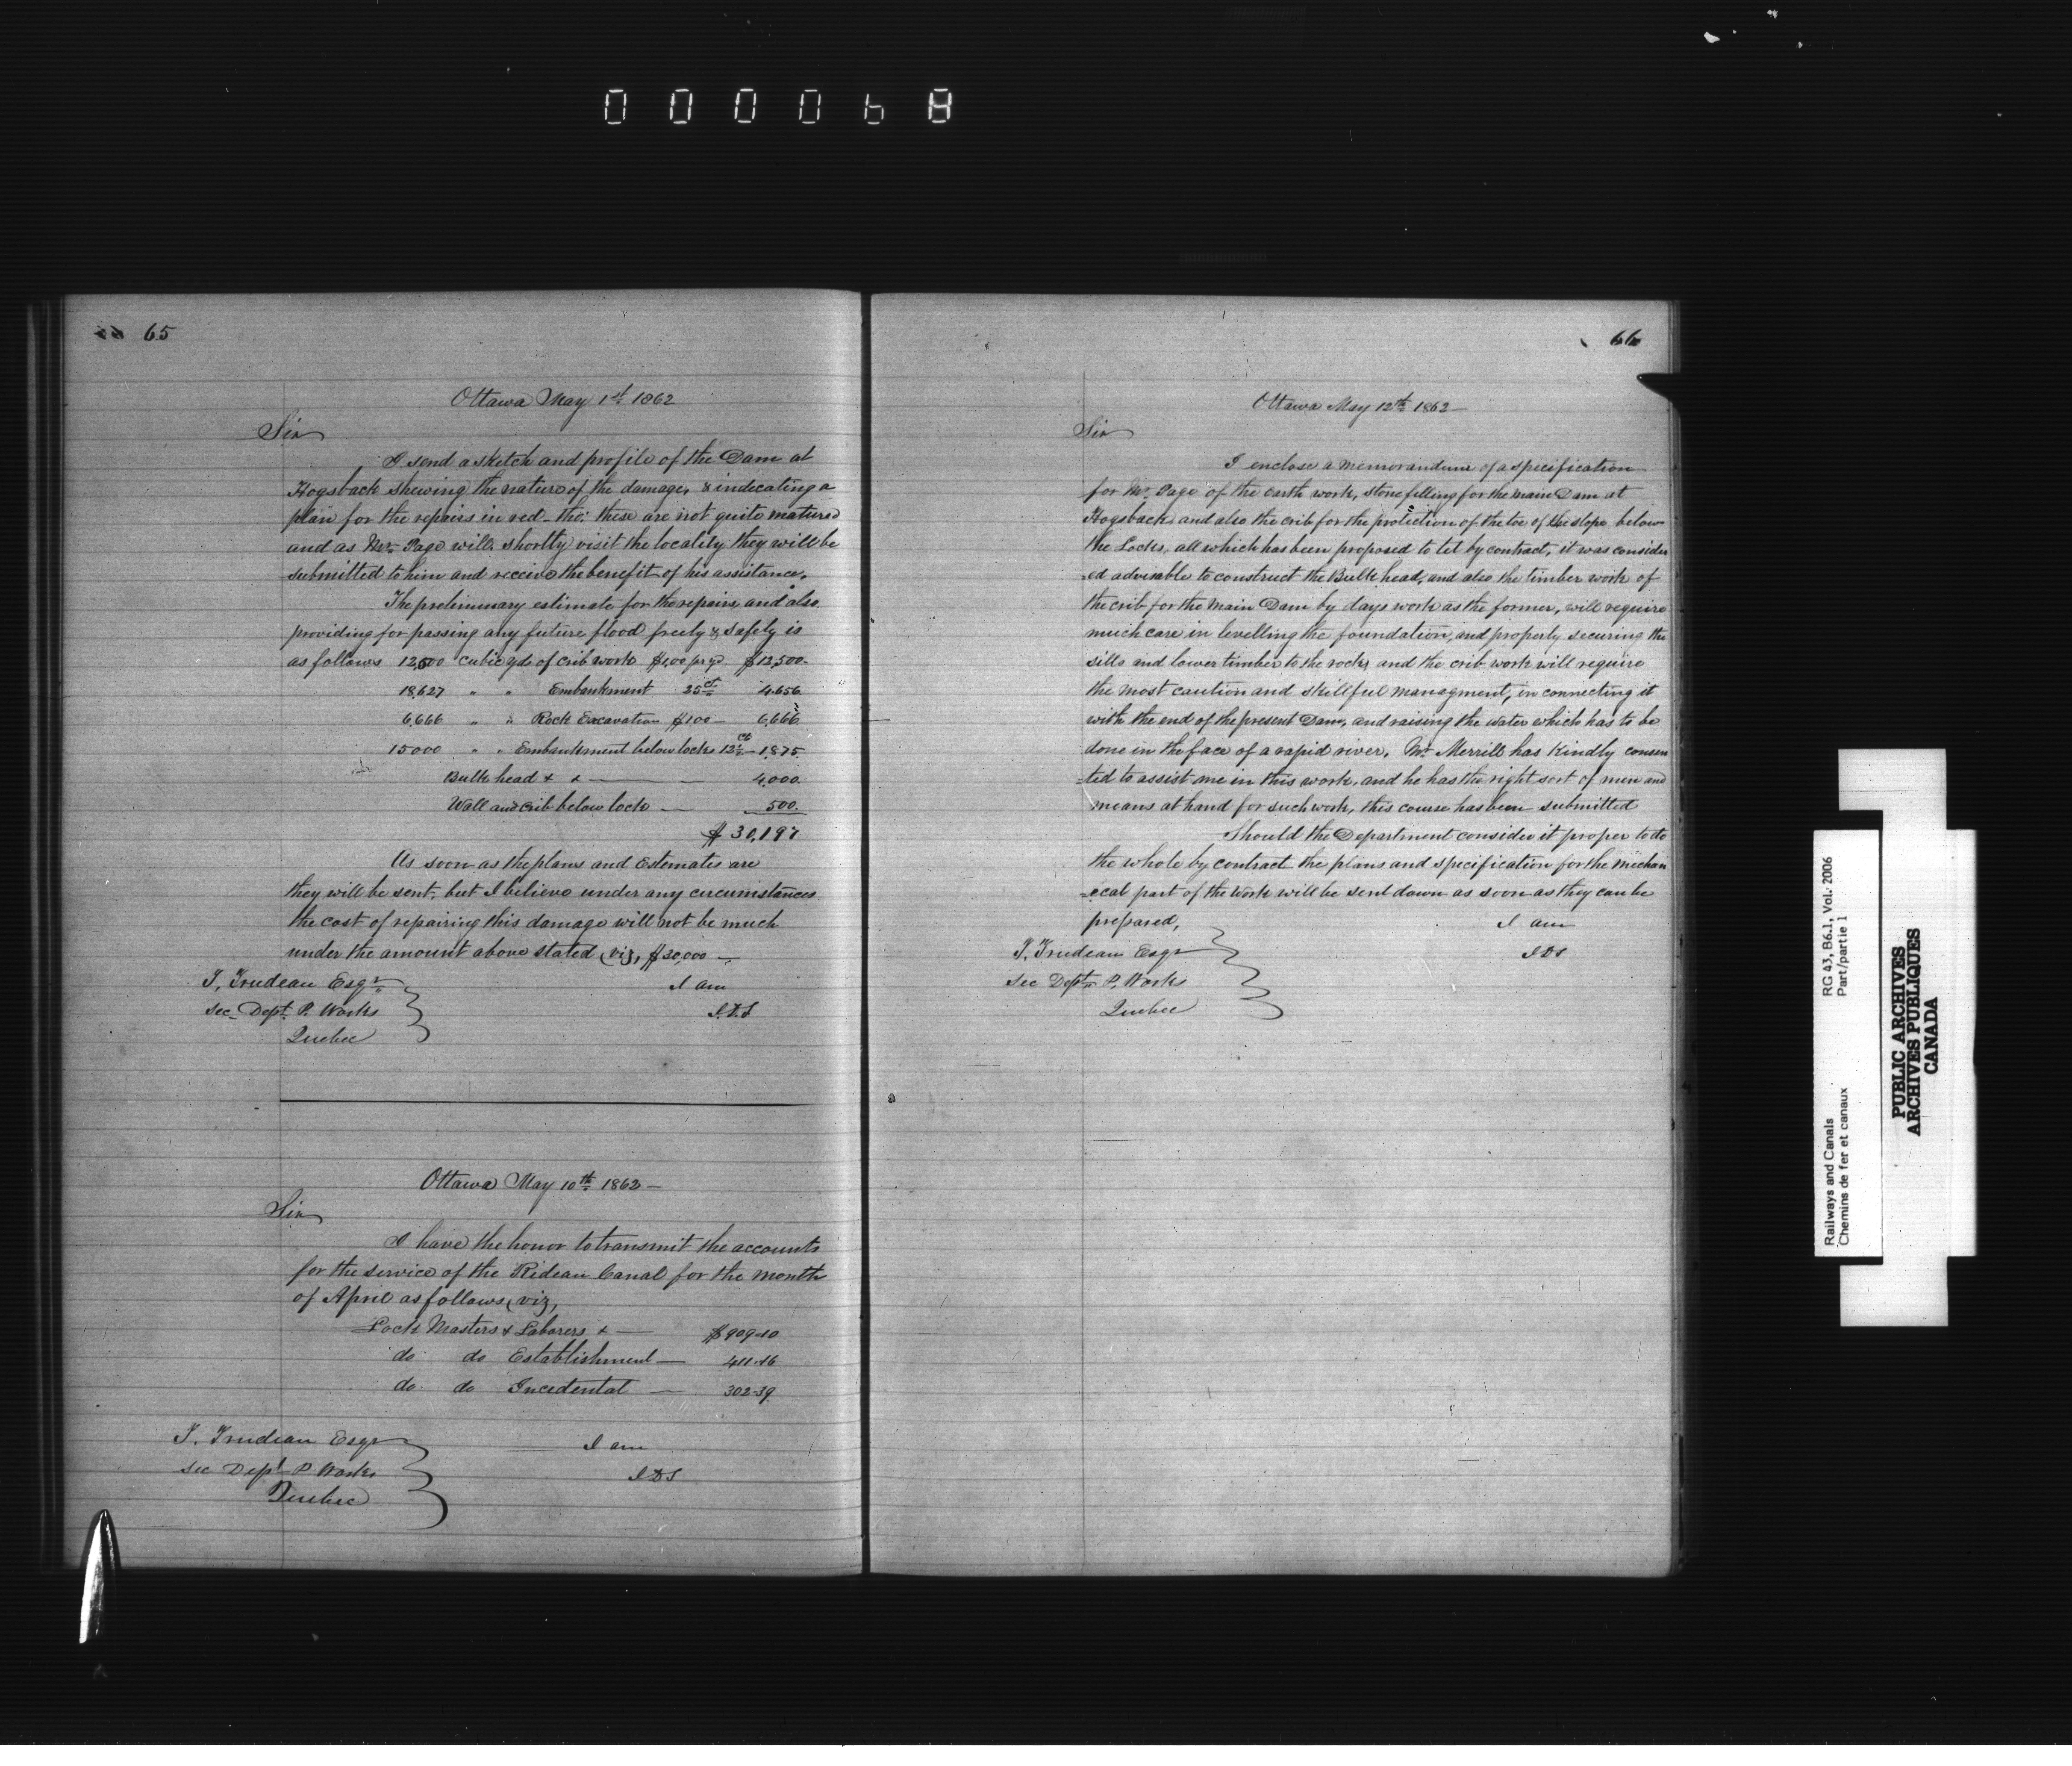 000068
65
Ottawa May 1st 1862
Sir
I send a sketch and profile of the Dam at
Hogsback shewing the nature of the damage, & indecating a
plan for the repairs in red - tho' these are not quite matured
and as Mr Page will shortly visit the locality they will be
submitted to him and receive the benefit of his assistance.
The preliminary estimate for the repairs and also
providing for passing any future flood freely & safely is
as follows 12,500 cubic yds of crib work $1,00 pr yd $12,500.
18,627 " " Embankment 25 ct 4.656.
6,666 " " Rock Excavation $1.00 — 6,666
15000 " " Embankment below locks 12½ ct — 1,875.
Bulk head & & — — 4,000.
Wall and crib below lock — 500.
$30,197
As soon as the plans and Estemates are
they will be sent, but I believe under any circumstances
the cost of repairing this damage will not be much
under the amount above stated (viz, $30,000 —
T, Trudeau Esqr I am
Sec. Dept. P. Works J.D.S
Quebec
Ottawa May 10th 1862 —
Sir
I have the honor to transmit the accounts
for the service of the Rideau Canal for the month
of April as follows (viz,
Lock Masters & Laborers & — $909-10
do do Establishment — 411.16
do. do Incedental — 302-39
T. Trudeau Esqr
I am
Sec Dept P Works
J D S
Quebec
66
Ottawa May 12th 1862 —
Sir
I enclose a memorandum of a specification
for Mr Page of the earth work, stone filling for the main Dam at
Hogsback and also the crib for the protection of the toe of the slope below
the Locks, all which has been proposed to let by contract, it was consider
=ed advisable to construct the Bulk head, and also the timber work of
the crib for the main Dam by days work as the former, will require
much care in levelling the foundation, and properly securing the
sills and lower timber to the rocks and the crib work will require
the most caution and skillful managment, in connecting it
with the end of the present Dam, and raising the water which has to be
done in the face of a rapid river. Mr Merrill has Kindly consen
=ted to assist me in this work, and he has the right sort of men and
means at hand for such work, this course has been submitted
Should the Department consider it proper to do
the whole by contract the plans and specification for the mechan
=ecal part of the Work will be sent down as soon as they can be
prepared, I am
T, Trudeau Esqr J D S
Sec Dept P. Works
Quebec
Railways and Canals RG 43, B6.1., Vol. 2006
Chemins de fer et canaux Part/partie 1
PUBLIC ARCHIVES
ARCHIVES PUBLIQUES
CANADA